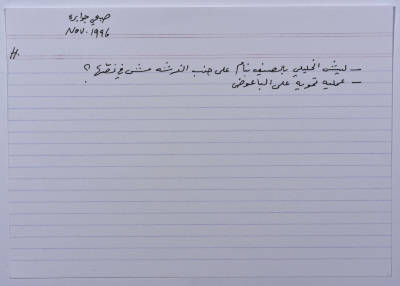 صبحي جوابره
Nov. 1996
H.
ــ ليش الخليلي بالصيف نام على جنب الفرشه مش في نصّها ؟
ــ عملية تمويه على الباعوض !